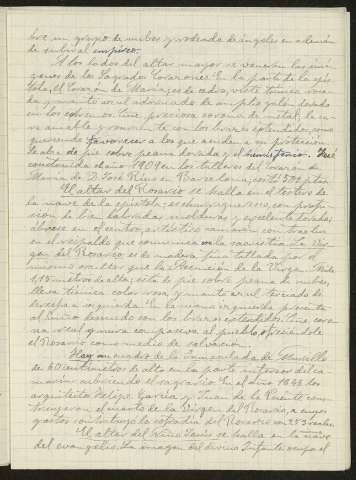 bre un grupo de nubes y rodeada de ángeles en ademán
de subir al empíreo.
A los lados del altar mayor se veneran las imá-
genes de los Sagrados Corazones. En la parte de la epís-
tola, el Corazón de María; es de cedro, viste túnica rosa-
da y manto azul adornado de amplio galón dorado
en los col precioso corona de metal, la ca-
ra amable y sonriente con los brazos extendidos, como
queriendo favorecer a los que acuden a su protección
de pie sobre peana dorada y Fué
construida el año 1904 en los talleres del Corazón de
María de D. José Rius en Barcelona; costó
El altar del Rosario se halla en el testero de
la nave de la epístola; es churrigueresco, con profu-
sión de bien labradas molduras y excelente dorado;
ábrese en el centro, artístico camarín con tras luz
en el respaldo que comunica con la sacristía. La Vir-
gen del Rosario es de madera, fué tallada por el
mismo escultor que la Asunción de la Virgen. Mide
1,15 metros de alto; está de pie sobre peana de nubes,
lleva túnica color rosa y manto azul terciado de
derecha a izquierda. En la mano izquierda presenta
al Niño desnudo con los brazos extendidos. Tiene coro-
na real y mira compasiva al pueblo, ofreciéndole
el Rosario como medio de salvación.
Hay un cuadro de la Inmaculada de Murillo
de 40 centímetros de alto en la parte anterior del ca-
marín, cubriendo el sagrario. En el año 1648 los
arquitectos Felipe García y Juan de la Puente cons-
truyeron el cuarto de la Virgen del Rosario, a cuyos
gastos contribuyó la cofradía del Rosario con 223 reales.
El altar del Niño Jesús se halla en la nave
del evangelio. La imagen del divino Infante ocupa el